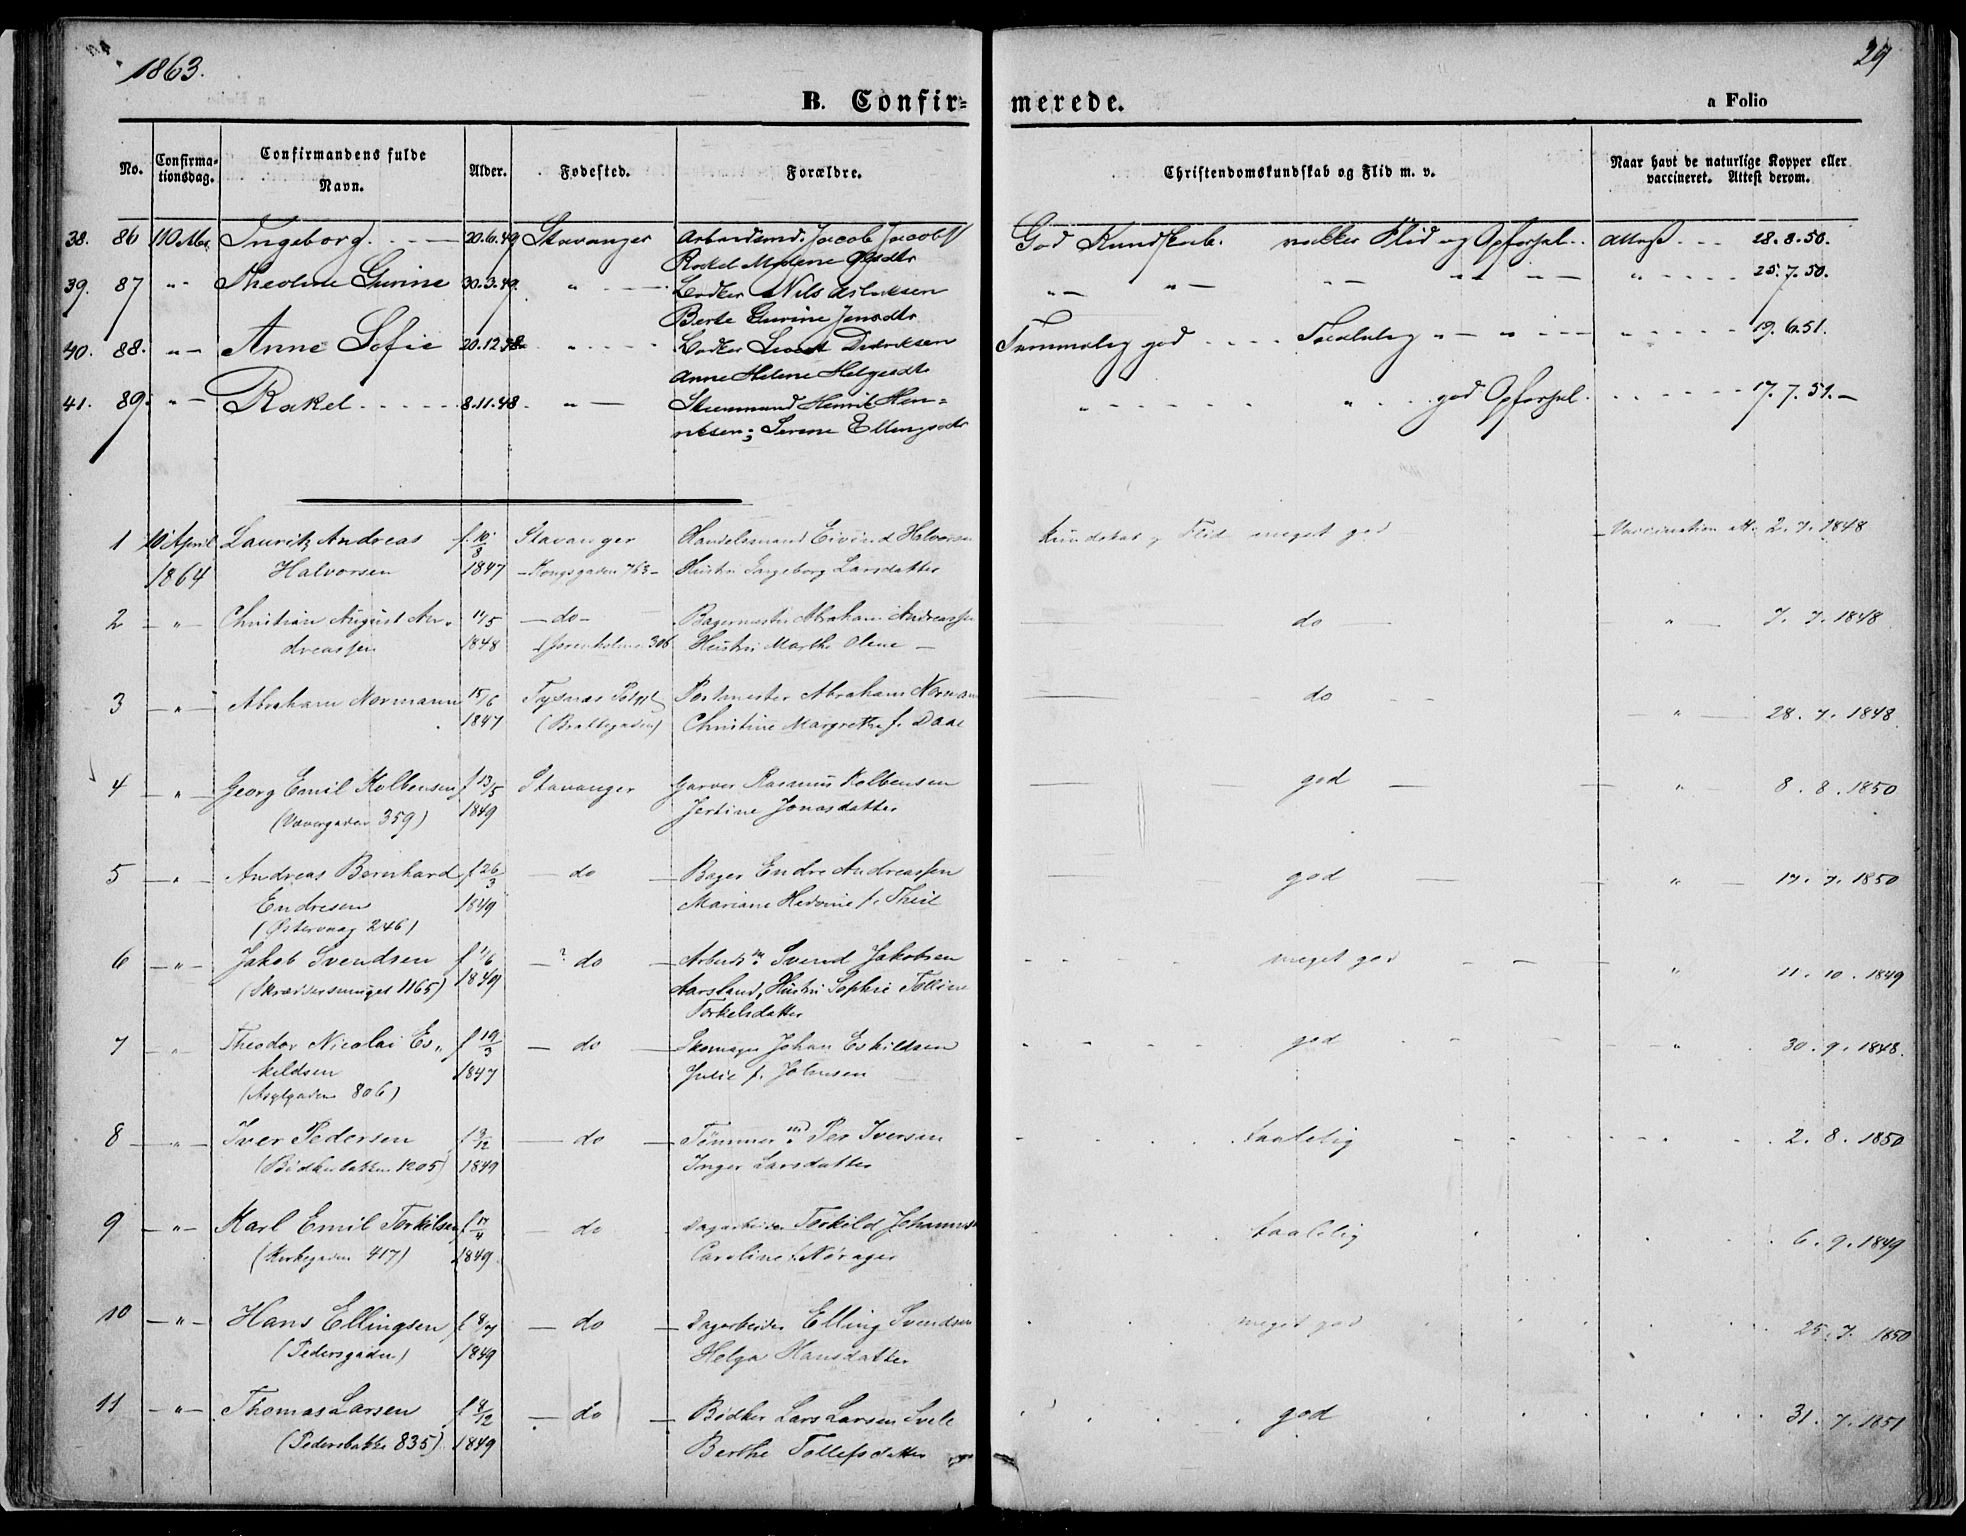 1863.
29
B. Confir-
merede.
a Folio
No.
Confirma-
tionsdag.
Confirmandens fulde
Navn.
Alder.
Fødested.
Forældre.
Christendomskundskab og Flid m. v.
Naar havt de naturlige Kopper eller
vaccineret. Attest derom.
38. 86 Ingeborg. 20.6.49 Stavanger Jacob God Kundskab. Flid og Opførsel. attest 28.8.50.
Rakel
39. 87 " Theoline Gurine 30.3.49. " Nils " " " " " 25.7.50.
Berte Gurine Jensdtr.
40. 88. " Anne Sofie 20.12.48 " Didriksen Temmelig god Taalelig " " 19.6.51.
Anne Helene Helgesdtr
41. 89. " Rakel 8.11.48. " Henrik Hen- " " god Opførsel. 17.7.51.
riksen; Serine Ellingsdtr
1 10 April Lauritz Andreas f. 10/8 Stavanger Handelsmand Eivind Halvorsen Kundskab og Flid meget god Vaccination att. 2.7.1848
1864 Halvorsen 1847 Kongsgaden 763 Hustru Ingeborg Larsdatter
2 " Christian August An- 11/5 do Bagermester Abraham Andreassen do " 7.7.1848
dreassen 1848 306 Hustru Marthe Olene
3 " Abraham Normann 15/6 Tysnæs Postmester Abraham Norman do " 28.7.1848.
1847 (Brattegaden) Christine Margrethe f. Daae
4 " Georg Emil Kolbensen f 13/5 Stavanger Garver Rasmus Kolbensen god " 8.8.1850
(Vævergaden 359) 1849 Jertine Jonasdatter
5 " Andreas Bernhard f 26/3 do Bager Endre Andreassen god " 17.7.1850
Endresen 1849 Mariane Hedvine f. Theil
(Østervaag 246)
6 " Jakob Svendsen f 1/6 ? do Arbeidsm. Svend Jakobsen meget god " 11.10.1849
(Skrædersmuget 1165) 1849 Aarsland, Hustru Sophie
Torkelsdatter
7 " Theodor Nicolai Es- f 19/3 do Skomager Johan Eskildsen god " 30.9.1848.
kildsen 1847 Julie f. Johnsen
(Asylgaden 806)
8 " Iver Pedersen f 9/12 do Tømmermd. Per Iversen taalelig 2.8.1850
(Bødkerbakken 1205) 1849 Inger Larsdatter
9 " Karl Emil Torkilsen f. 17/4 do Dagarbeider Torkild taalelig 6.9.1849
(Kirkegaden 417) 1849. Caroline f. Nørager
10 " Hans Ellingsen f 8/7 do Dagarbeider Elling Svendsen meget god 25.7.1850
(Pedersgaden) 1849 Helga Hansdatter
11 " Thomas Larsen f 8/12 do Bødker Lars Larsen Svele god 31.7.1851
(Pedersbakke 835) 1849 Berthe Tollefsdatter